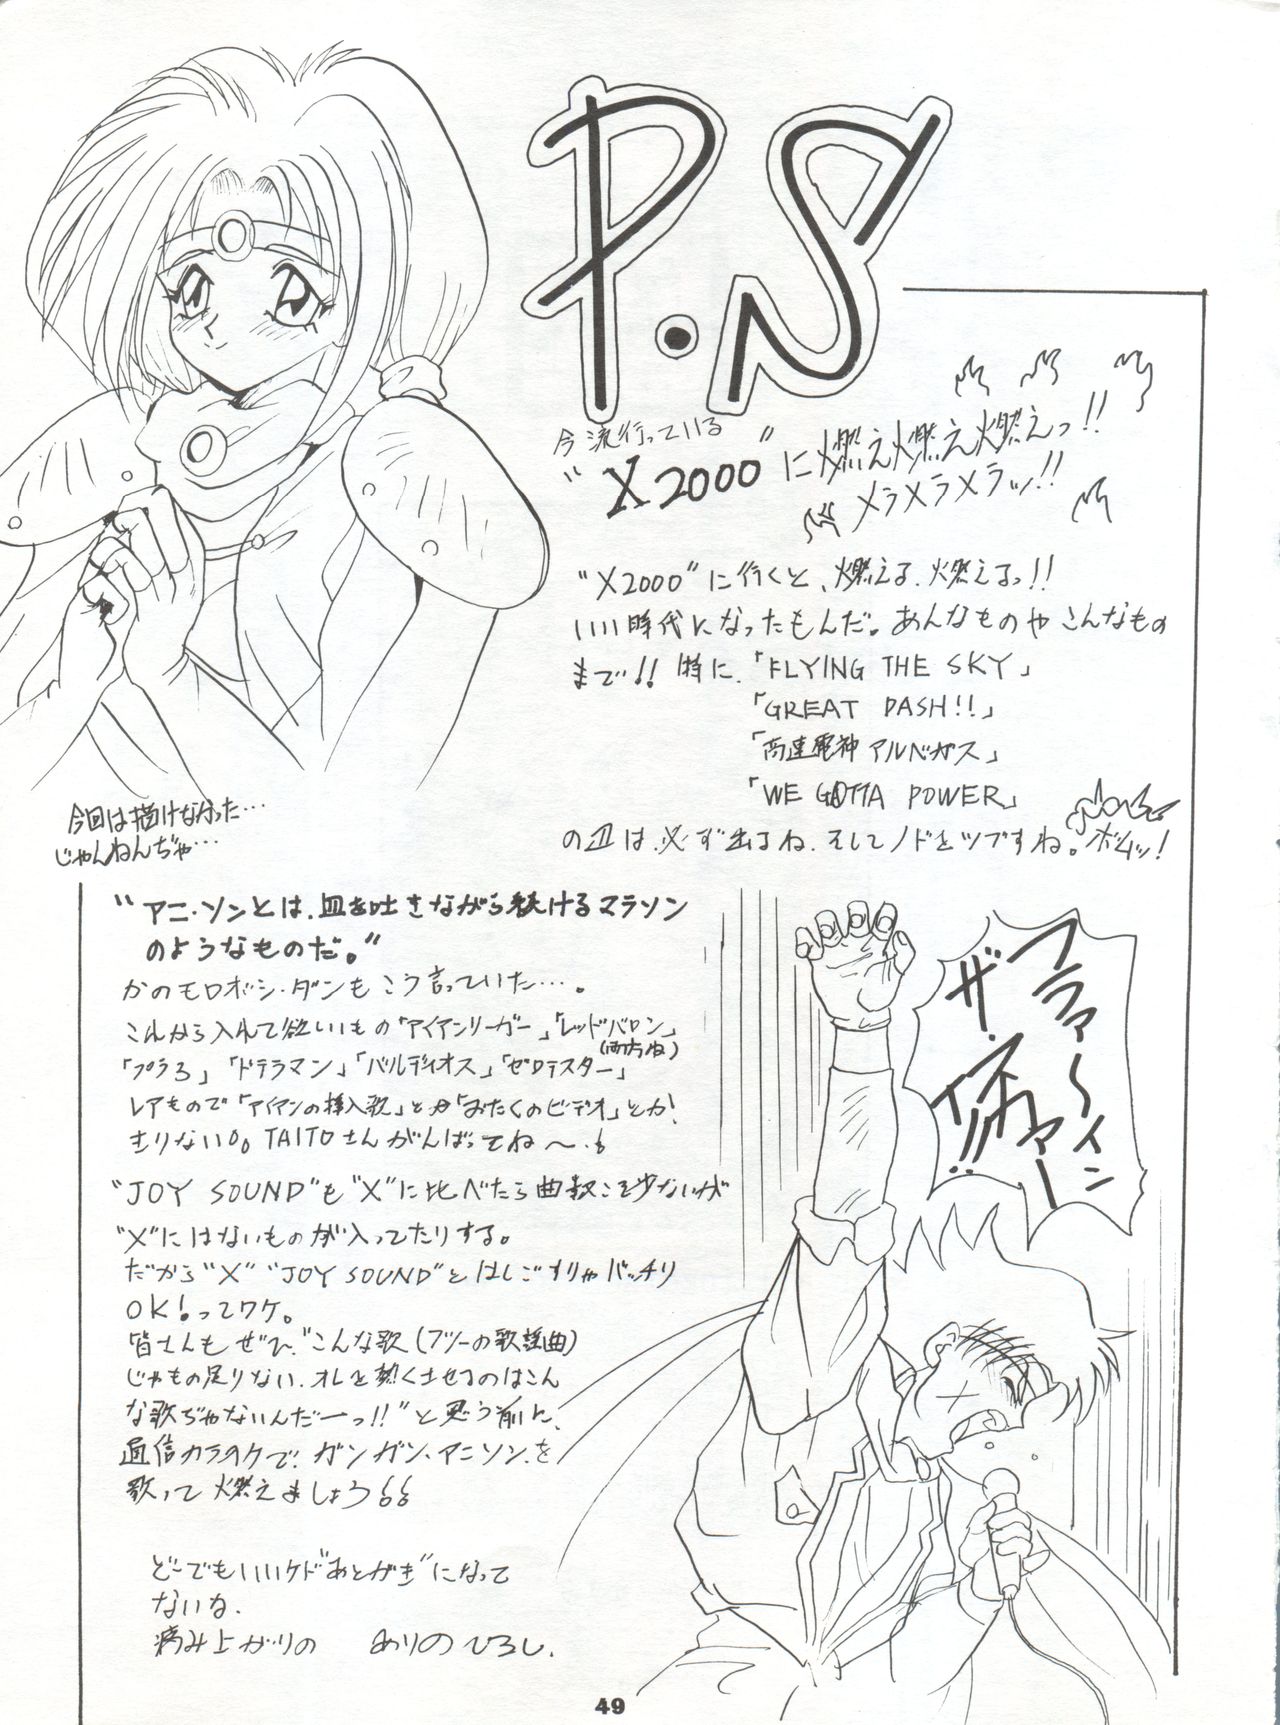 P.S
今流行っている
"X2000"に燃え燃え燃えっ!!
メラメラメラッ!!
"X2000"に行くと、燃える、燃えるっ!!
いい時代になったもんだ。あんなものやこんなもの
まで!! 特に、「FLYING THE SKY」
「GREAT DASH!!」
「高速電神アルベガス」
「WE GOTTA POWER」
の辺は、必ず出るね、そしてノドをツブすね。ボムッ!
今回は描けなかった…
じゃんねんぢゃ…
"アニ・ソンとは、血を吐きながら続けるマラソン
のようなものだ。"
かのモロボシ・ダンもこう言っていた…。
これから入れて欲しいもの「アイアンリーガー」「レッドバロン」
(両方ね)
「プラ3」「ドテラマン」「バルディオス」「ゼロテスター」
レアもので「アイアンの挿入歌」とか「おたくのビデオ」とか!
きりない。TAITOさんがんばってね〜。
"JOY SOUND"も"X"に比べたら曲数こそ少ないが
"X"にはないものが入ってたりする。
だから"X" "JOY SOUND"とはしごすりゃバッチリ
OK!ってワケ。
皆さんもぜひ、"こんな歌(フツーの歌謡曲)
じゃもの足りない、オレを熱くさせるのはこん
な歌ぢゃないんだーっ!!"と思う前に、
通信カラオケで、ガンガン、アニソンを
歌って燃えましょう
ファァ〜イン
ザ・スネァー
イ!!!
どーでもいいケド"あとがき"になって
ないな、
病み上がりの ありのひろし.
49